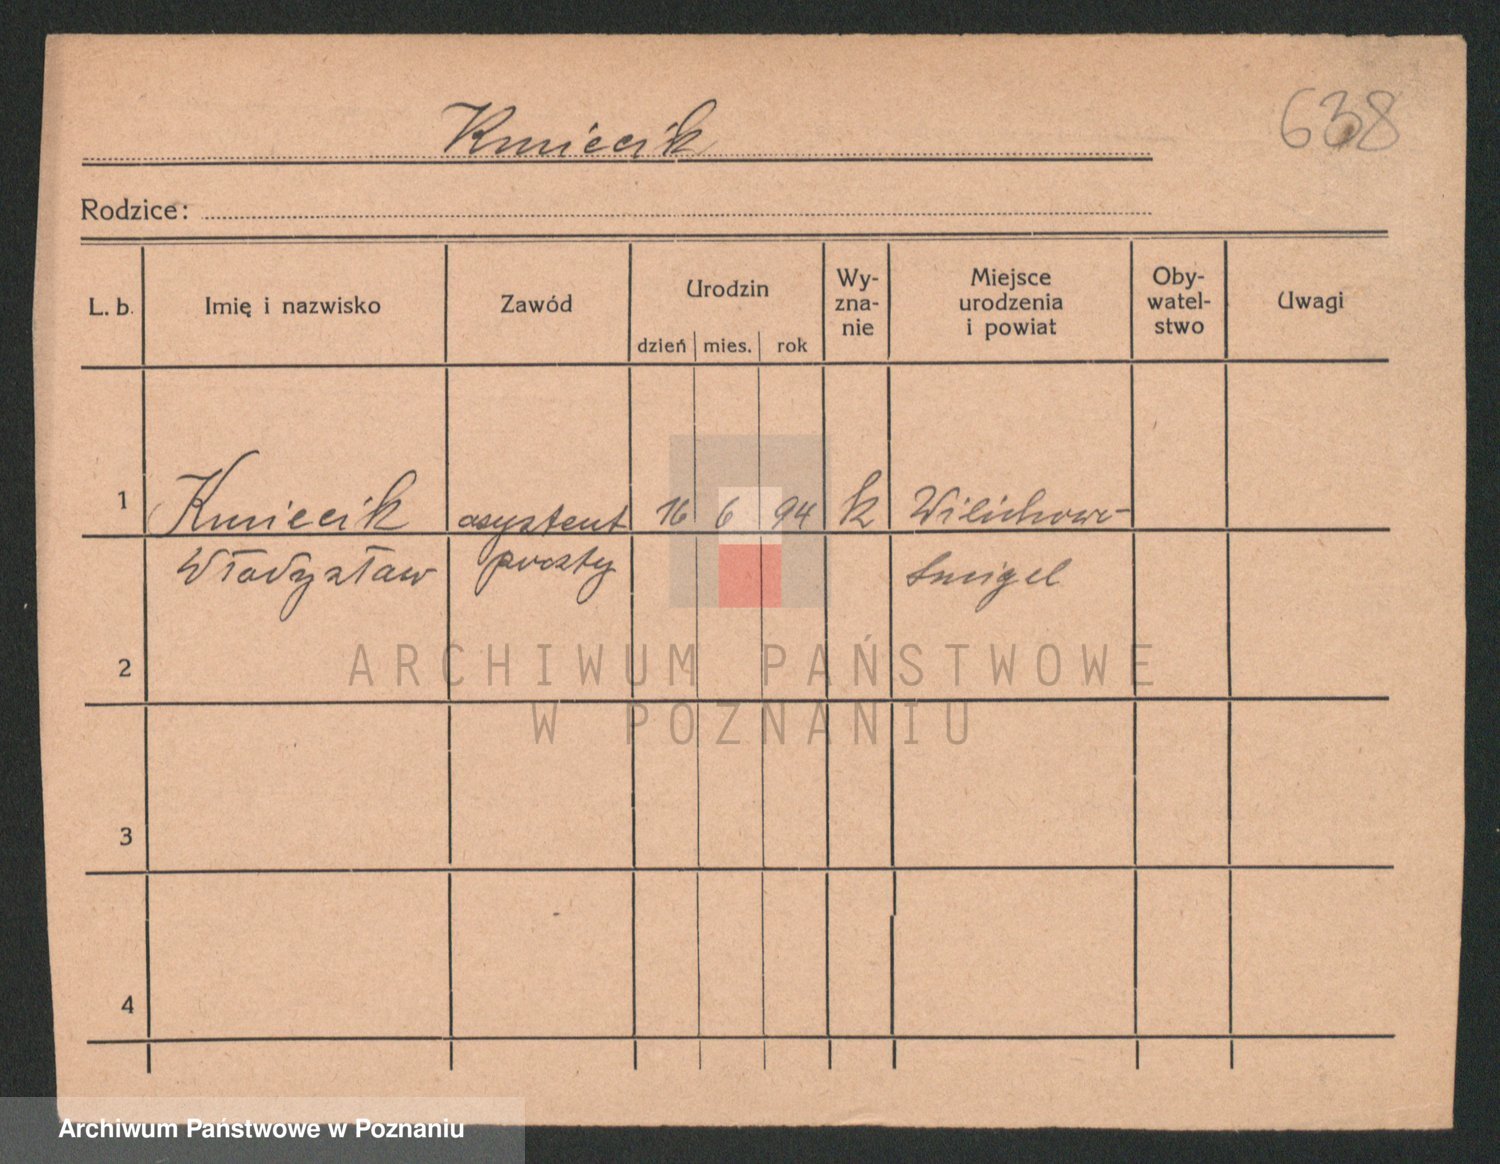 Kmiecik
638
Rodzice:
L. b. Imię i nazwisko Zawód Urodzin dzień mies. rok Wy-zna-nie Miejsce urodzenia i powiat Oby-watel-stwo Uwagi
1 Kmiecik asystent 16 6 94 k Wilichowo
Władysław poczty Smigel
2
ARCHIWUM PAŃSTWOWE
W POZNANIU
3
4
Archiwum Państwowe w Poznaniu